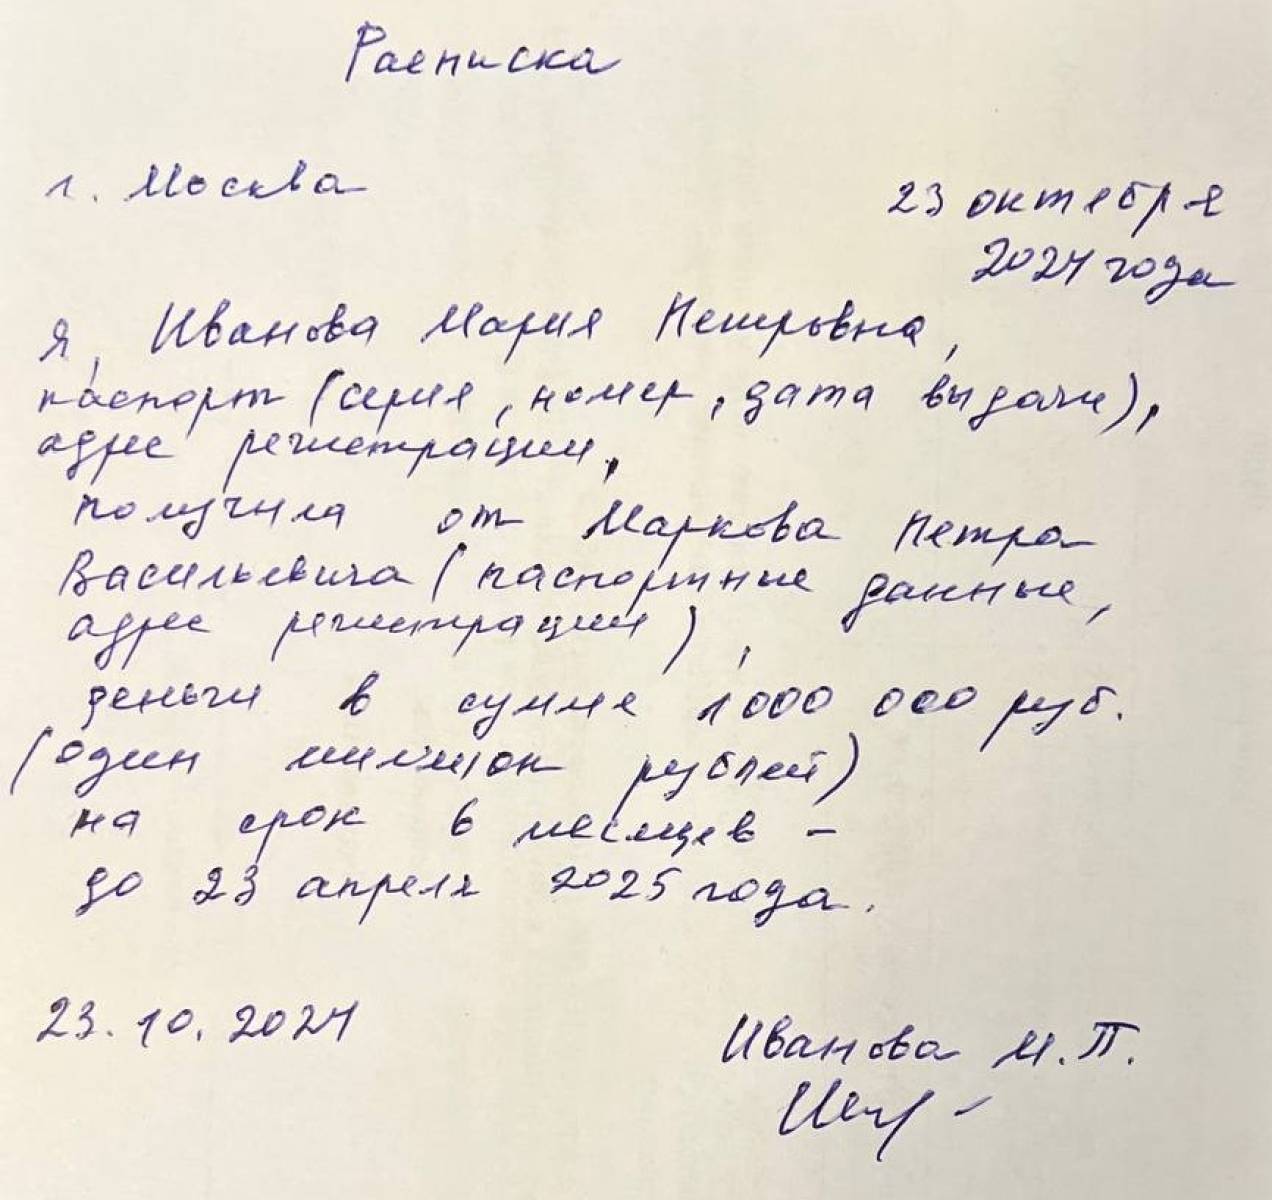 Расписка
г. Москва
23 октября
2024 года
Я, Иванова Мария Петровна,
паспорт (серия, номер, дата выдачи),
адрес регистрации,
получила от Маркова Петра
Васильевича (паспортные данные,
адрес регистрации),
деньги в сумме 1000 000 руб.
(один миллион рублей)
на срок 6 месяцев –
до 23 апреля 2025 года.
23.10.2024
Иванова М.П.